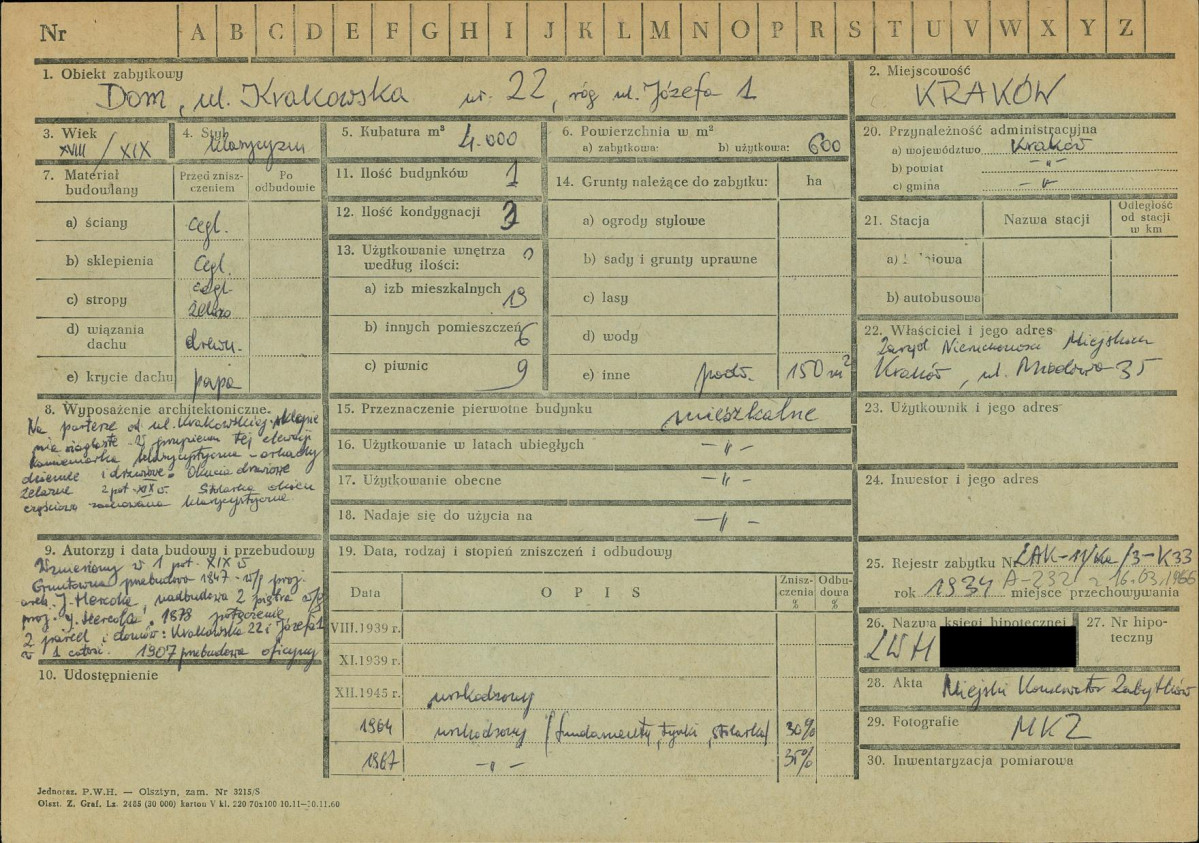 Nr A B C D E F G H I J K L M N O P R S T U V W X Y Z
1. Obiekt zabytkowy
Dom, ul. Krakowska nr. 22, róg ul. Józefa 1
2. Miejscowość
KRAKÓW
3. Wiek
XVIII / XIX
4. Styl
klasycyzm
5. Kubatura m³ 4.000
6. Powierzchnia w m²
a) zabytkowa: b) użytkowa: 600
7. Materiał budowlany
Przed zniszczeniem
Po odbudowie
a) ściany cegl.
b) sklepienia cegl.
c) stropy cegl
żelazo
d) wiązania dachu drewn.
e) krycie dachu papa
8. Wyposażenie architektoniczne.
Na parterze od ul. Krakowskiej
W przyziemiu tej elewacji
kamieniarka klasycystyczna - arkady
okienne i drzwiowe. Okucia drzwiowe
żelazne 2 poł. XIX w. Stolarka okien
częściowo zachowana klasycystyczna
9. Autorzy i data budowy i przebudowy
Wzniesiony w 1 poł. XIX w
Gruntowna przebudowa 1847 - w/g proj.
arch. J. nadbudowa 2 piętra w/g
proj. J. 1878 połączenie
2 parcel i domów: Krakowska 22 i Józefa 1
w 1 całość. 1907 przebudowa oficyny
10. Udostępnienie
11. Ilość budynków 1
12. Ilość kondygnacji 3
13. Użytkowanie wnętrza
według ilości:
a) izb mieszkalnych 19
b) innych pomieszczeń 6
c) piwnic 9
14. Grunty należące do zabytku: ha
a) ogrody stylowe
b) sady i grunty uprawne
c) lasy
d) wody
e) inne podw. 150 m²
15. Przeznaczenie pierwotne budynku mieszkalne
16. Użytkowanie w latach ubiegłych — " —
17. Użytkowanie obecne — " —
18. Nadaje się do użycia na — " —
19. Data, rodzaj i stopień zniszczeń i odbudowy
Data OPIS Zniszczenia % Odbudowa %
VIII.1939 r.
XI.1939 r.
XII.1945 r. uszkodzony
1964 uszkodzony (fundamenty, tynki, stolarka) 30%
1967 — " — 35%
20. Przynależność administracyjna
a) województwo Kraków
b) powiat — " —
c) gmina — " —
21. Stacja
Nazwa stacji
Odległość od stacji w km
b) autobusowa
22. Właściciel i jego adres
Zarząd Nieruchomości Miejskich
Kraków, ul. Miodowa 35
23. Użytkownik i jego adres
24. Inwestor i jego adres
25. Rejestr zabytku Nr
rok 1934 A-232 z 16.03.1966
miejsce przechowywania
26. Nazwa księgi hipotecznej
LWH
27. Nr hipoteczny
28. Akta Miejski Konserwator Zabytków
29. Fotografie MKZ
30. Inwentaryzacja pomiarowa
Jednoraz. P.W.H. — Olsztyn, zam. Nr 3215/S
Olszt. Z. Graf. Lz. 2485 (30 000) karton V kl. 220 70x100 10.11—30.11.60